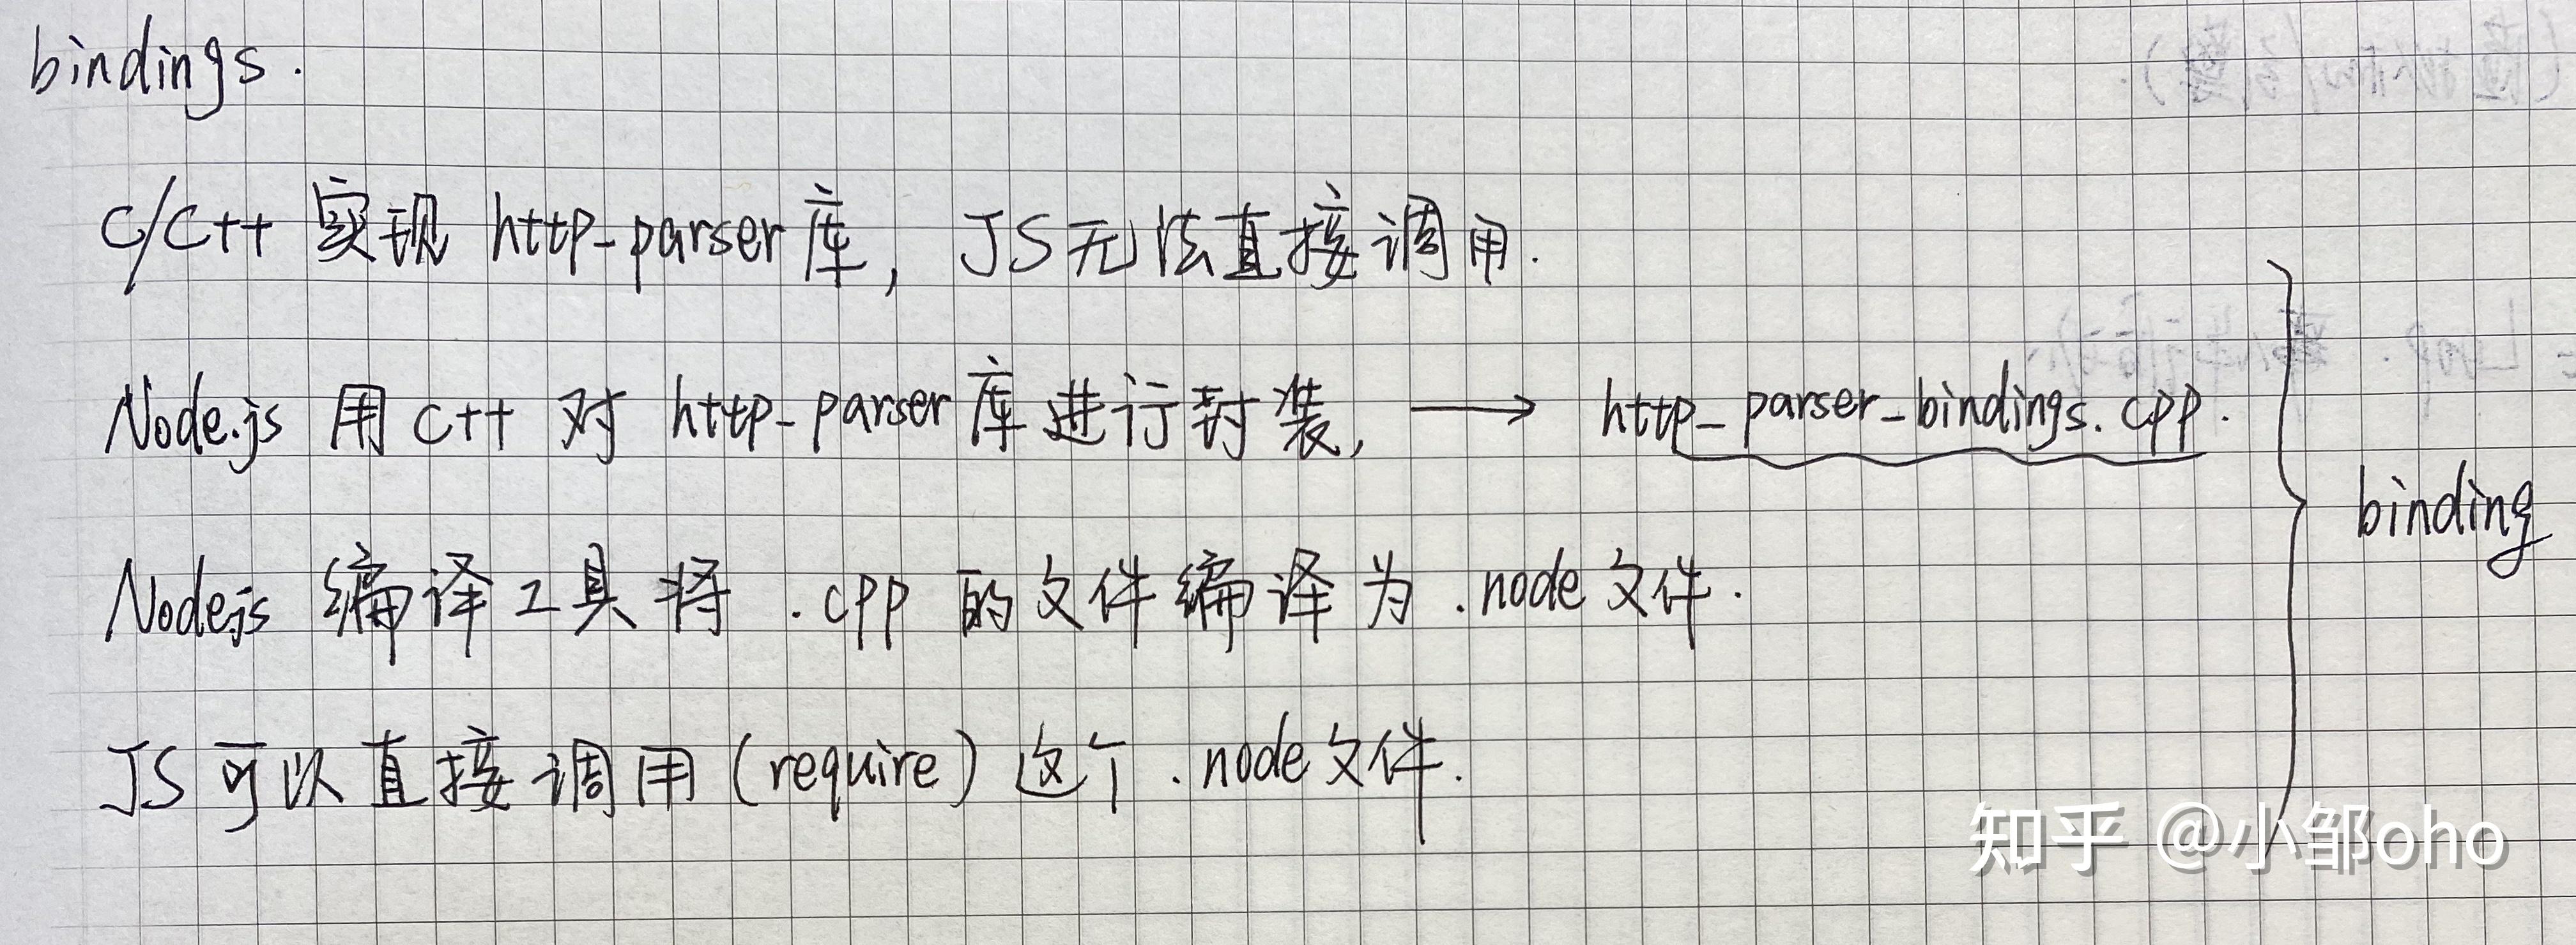 bindings.
C/C++ 实现 http-parser库, JS无法直接调用.
Node.js 用 C++ 对 http-parser库进行封装, → http_parser_bindings.cpp.
binding
Nodejs 编译工具将 .cpp 的文件编译为 .node文件.
JS可以直接调用(require)这个 .node文件.
知乎 @小邹oho